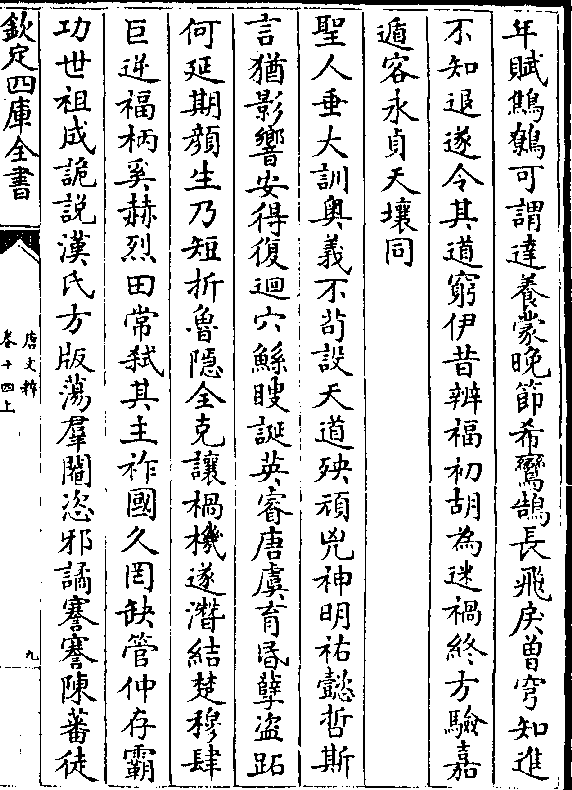 年賦鷦鷯可謂達養蒙晚節希鸞鵠長飛戾曾穹知進
不知退遂令其道窮伊昔辨福初胡為迷禍終方驗嘉
遁客永貞天壤同
聖人垂大訓奥義不苟設天道殃頑兇神明祐懿哲斯
言猶影響安得復迴穴鯀瞍誕英睿唐虞育昏孽盗跖
何延期顔生乃短折魯隱全克讓禍機遂潛結楚穆肆
巨逆福柄奚赫烈田常弑其主祚國久罔缺管仲存霸
功世祖成詭説漢氏方版蕩羣閹恣邪譎謇謇陳蕃徒
欽定四庫全書
唐文粹
卷十四上
九